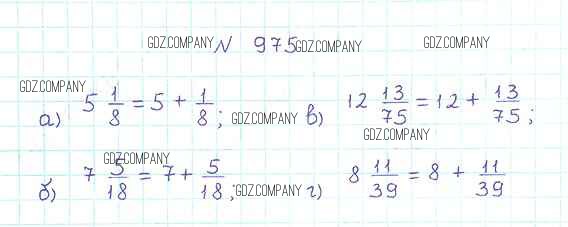 GDZ.COMPANY N 975 GDZ.COMPANY GDZ.COMPANY
GDZ.COMPANY
а) 5 1/8 = 5 + 1/8; GDZ.COMPANY в) 12 13/75 = 12 + 13/75;
GDZ.COMPANY
GDZ.COMPANY
б) 7 5/18 = 7 + 5/18; GDZ.COMPANY г) 8 11/39 = 8 + 11/39